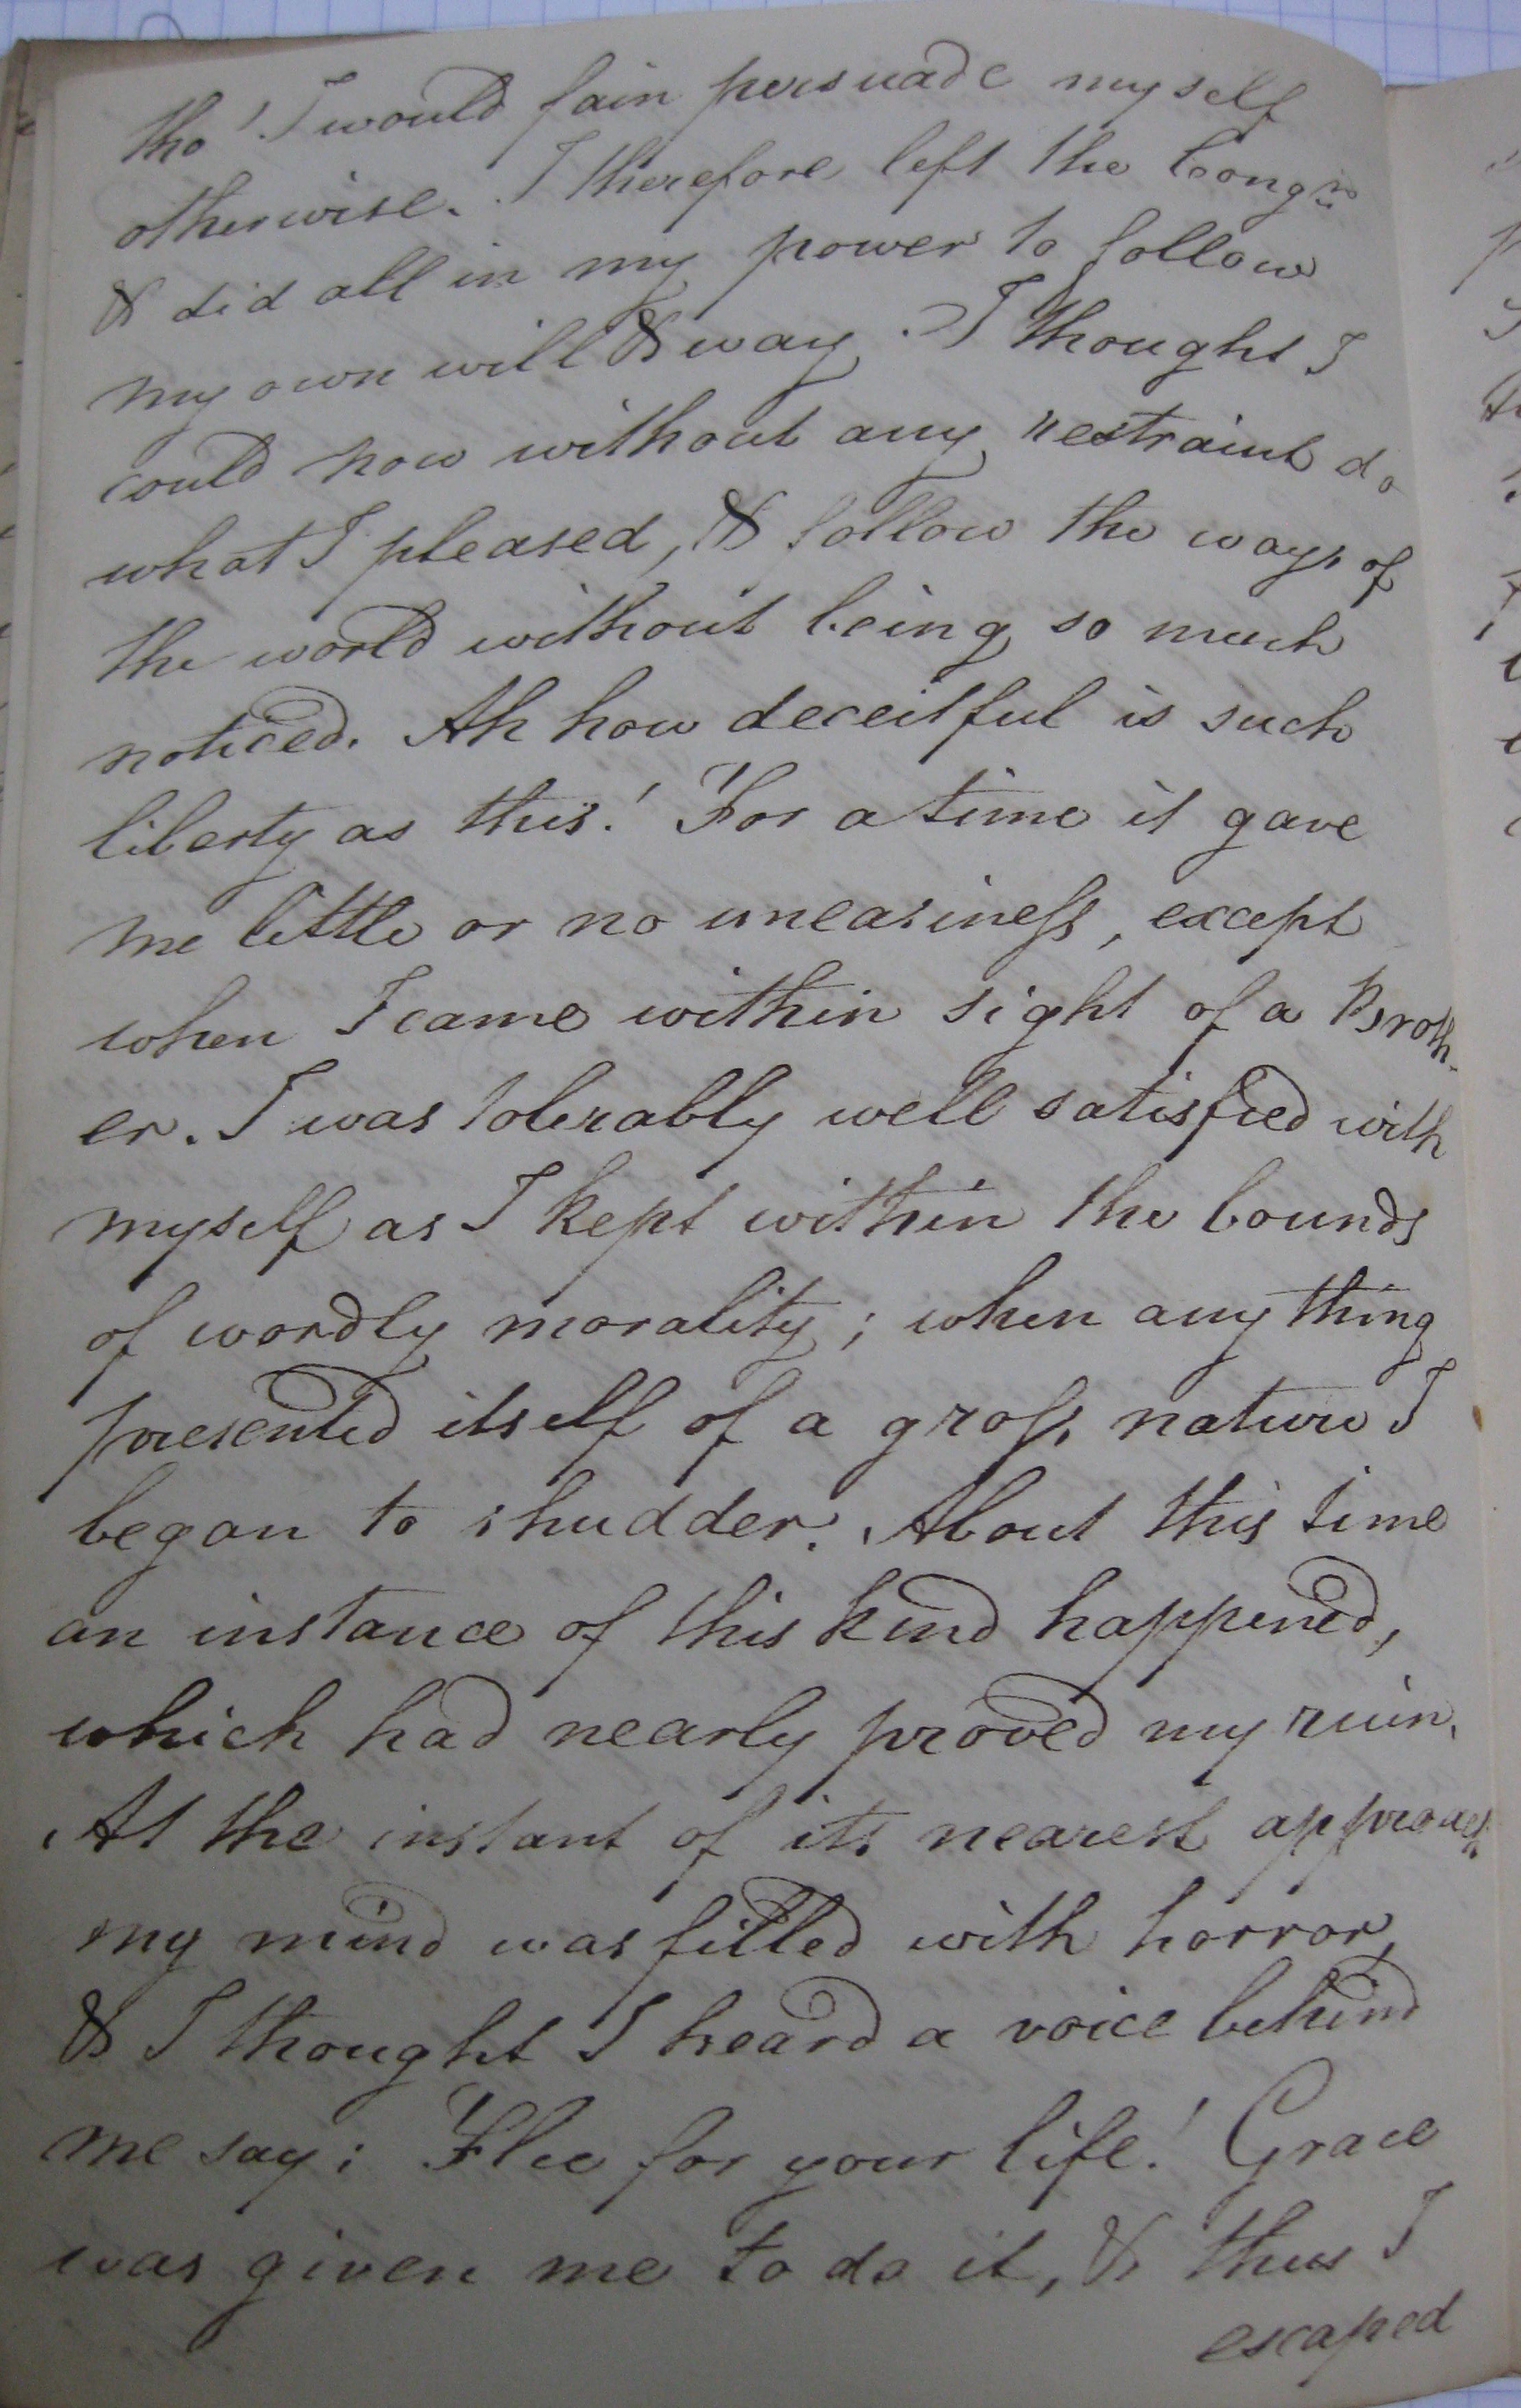 tho' I would fain persuade myself
otherwise. I therefore left the Congn
& did all in my power to follow
my own will & way. I thought I
could now without any restraint do
what I pleased, & follow the ways of
the world without being so much
noticed. Ah how deceitful is such
liberty as this! For a time it gave
me little or no uneasiness, except
when I came within sight of a Broth-
er. I was tolerably well satisfied with
myself as I kept within the bounds
of wordly morality; when any thing
presented itself of a gross nature I
began to shudder. About this time
an instance of this kind happened,
which had nearly proved my ruin.
At the instant of its nearest approach
my mind was filled with horror,
& I thought I heard a voice behind
me say: Flee for your life! Grace
was given me to do it, & thus I
escaped